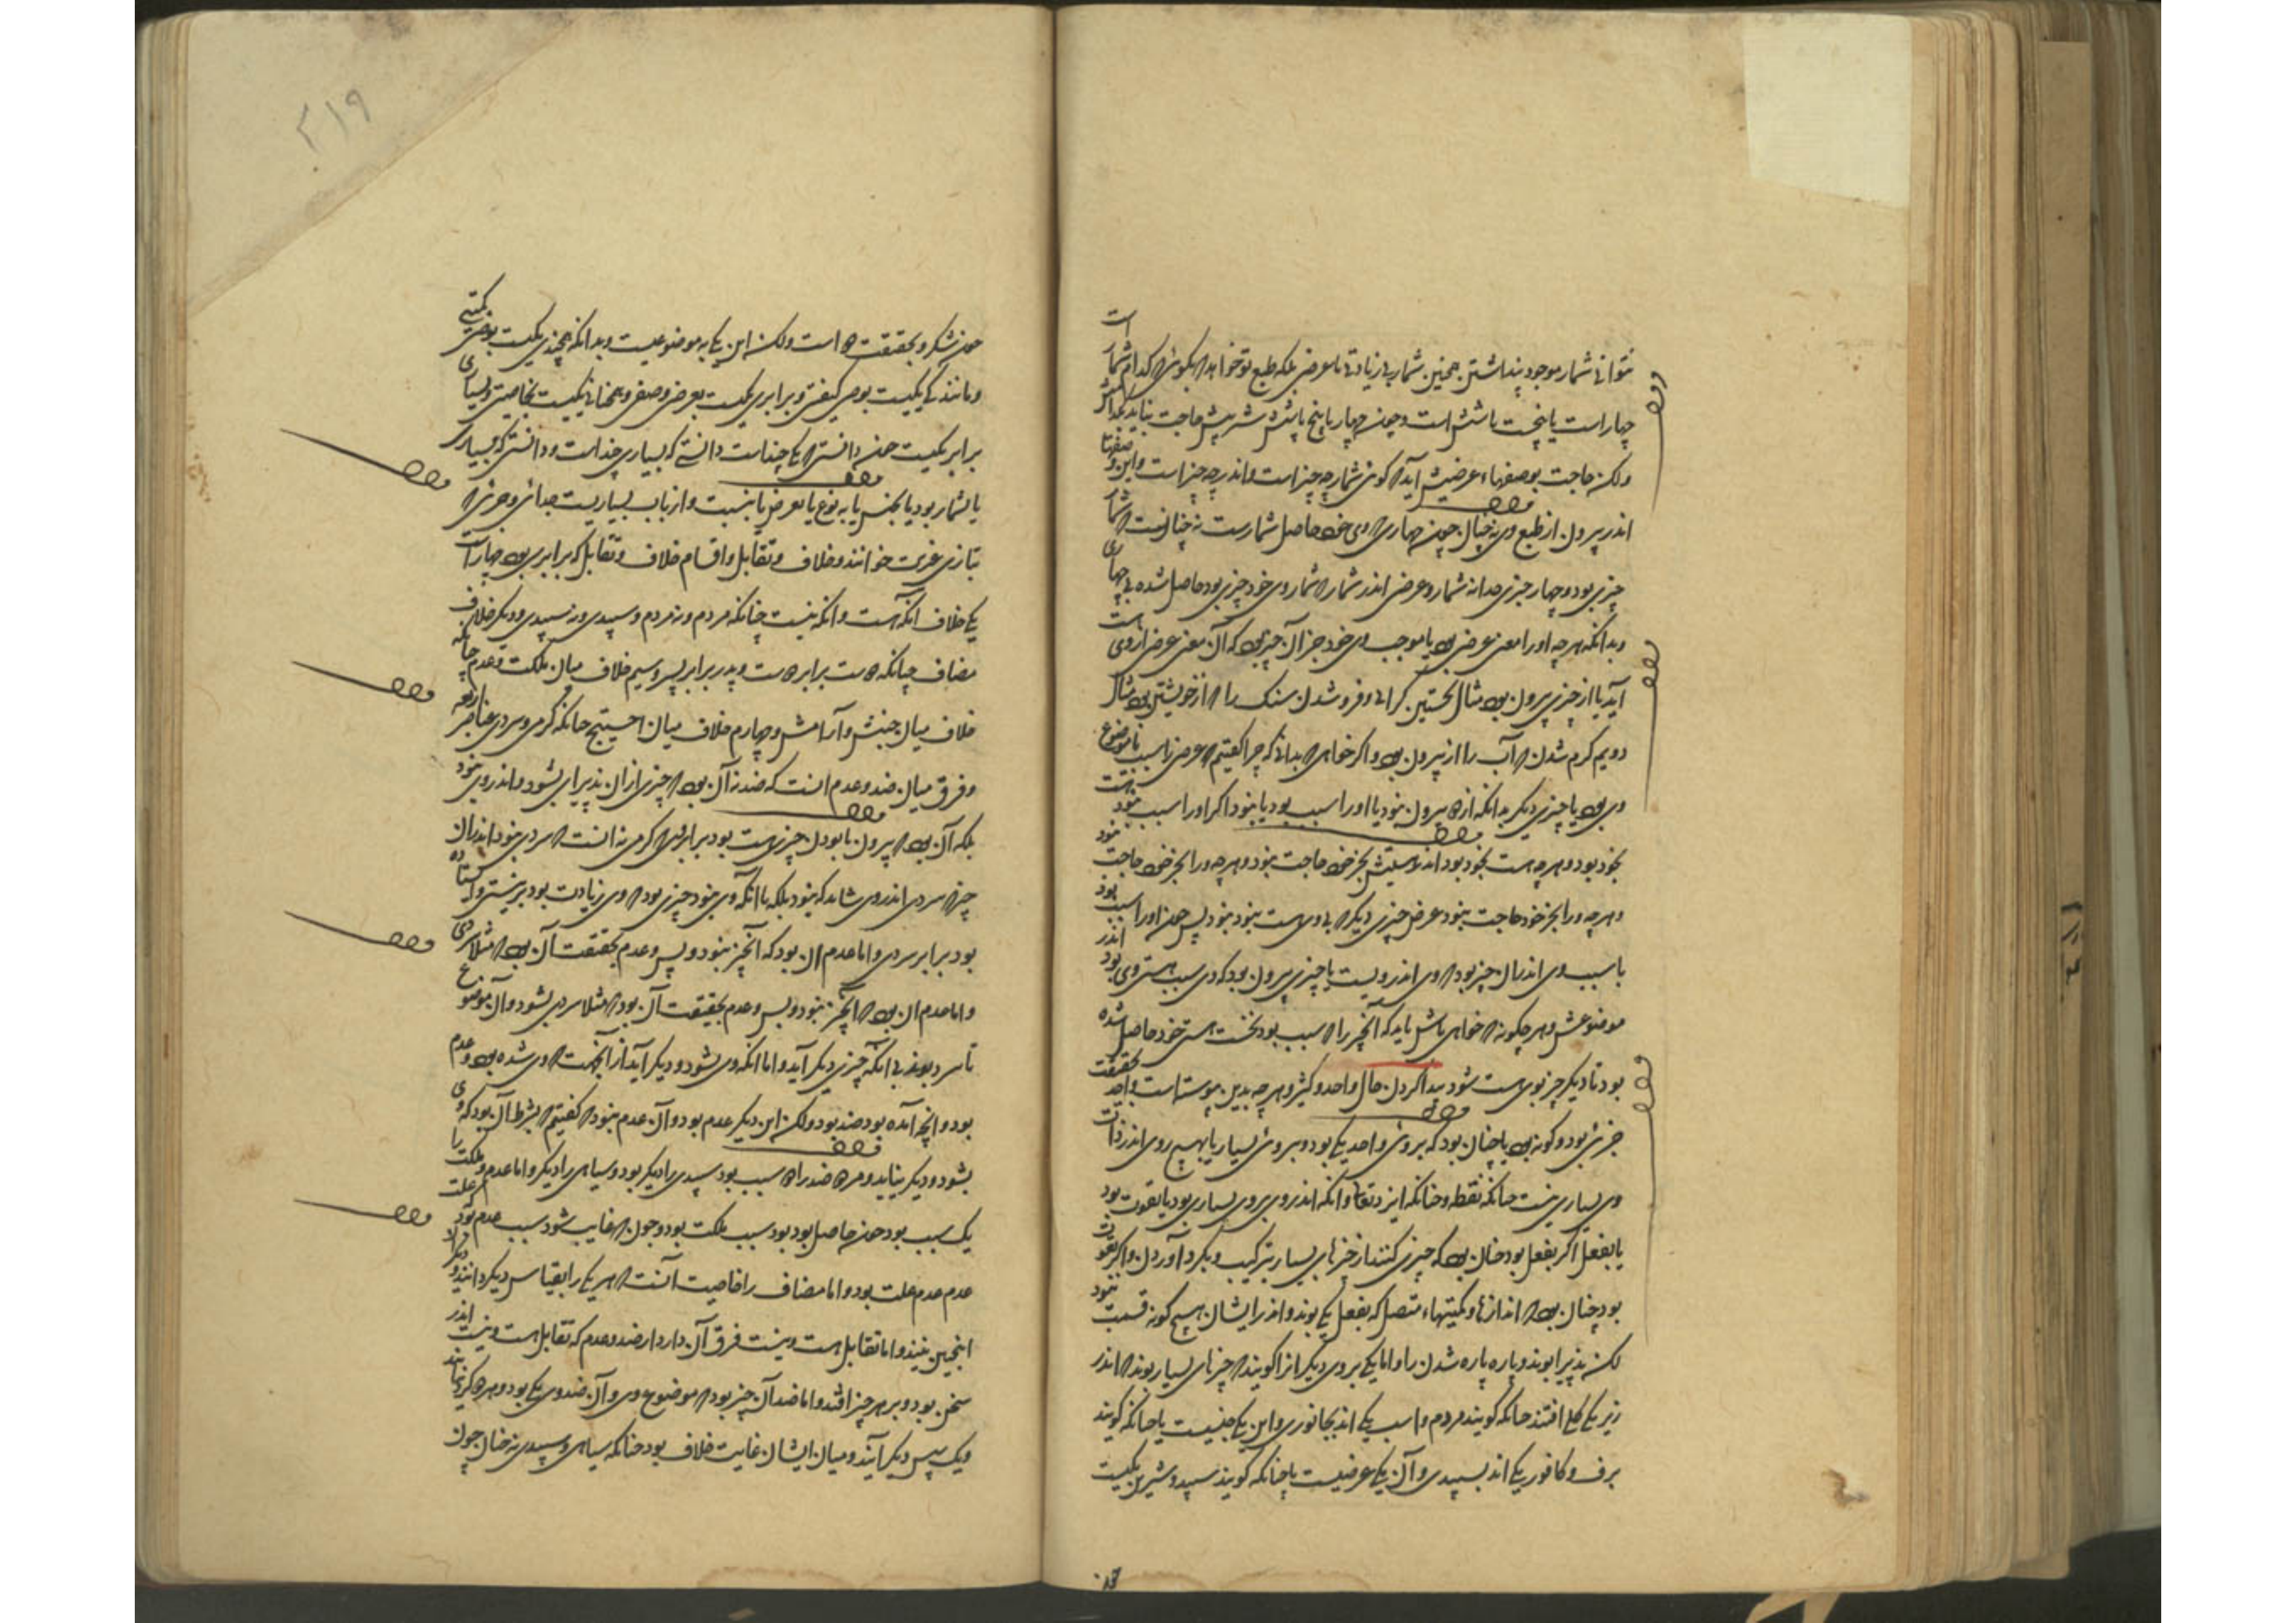 نتوانی شمار موجود پنداشتن همچنین شمار بی زیادتی نا عرضی بلکه طبع تو خواهد که بگوئی که کدام شمار است
چهار است یا پنجست یا شش است و چون چهار یا پنج یا شش شد بیش حاجت نیاید
ولکن حاجت بوصفهاء عرضیش آید که گوئی شمار چه چیز است و اندر چه چیز است و این وصفها
اندر بیرون از طبع وی نه چنان چون چهاری که وی خود حاصل شمارست نه چنانست که شمار
چیزی بود و چهار چیزی جدا نه شمار و عرضی اندر شمار که شمار وی خود چیزی بود حاصل شده بی چهاری
و بدانکه هرچه او را معنی عرضی بود یا موجب وی خود جز آن چیز بود که آن معنی عرض از وی است
آید یا از چیزی بیرون بود مثال نخستین گرانی و فرو شدن سنگ را که از خویشتن بود مثال
دویم گرم شدن که آب را از بیرون بود و اگر خواهی که بدانی که چرا گفتیم که عرض را سبب یا موضوع
وی بود یا چیزی دیگر بدانکه از دو بیرون نبود یا او را سبب بود یا نبود اگر او را سبب نبود
بخود بود و هرچه هست بخود بود اندر هستیش بجز خود حاجت نبود و هرچه ورا بجز خود حاجت نبود
و هرچه ورا بجز خود حاجت نبود عرض چیزی دیگر که بی وی هست نبود نبود پس چون او را سبب بود
یا سبب وی اندر آن چیز بود که وی اندرویست یا چیزی بیرون بود که وی سبب هستی وی بود اندر
موضوعش و هر چگونه که خواهی باش باید که آنچیز را که سبب بود نخست هستی خود حاصل شده
بود تا دیگر چیز بوی هست شود پیدا کردن حال واحد و کثیر و هرچه بدین پیوستا است واحد حقیقت
جزئی بود و گونه بود یا چنان بود که بروئی واحد یکی بود و بروئی بسیار یا بهیچ روی اندر ذات
وی بسیاری نیست چنانکه نقطه و چنانکه ایزد تعالی و آنکه اندر وی بروی بسیاری بود یا بقوت بود
یا بفعل اگر بفعل بود چنان بود که چیزی کنند از چیزهای بسیار بترکیب و بگرد آوردن و اگر بقوت
بود چنان بود که اندازها و کمیتهاء متصل که بفعل یکی بوند و اندر ایشان هیچ گونه قسمت نبود
لکن پذیرا بوند پاره پاره شدن را و اما یکی بروی دیگر آنرا گویند که چیزهای بسیار بوند که اندر
زیر یکی کلی افتند چنانکه گویند مردم و اسب یکی اند بجانوری و این یکی جنسیست یا چنانکه گویند
برف و کافور یکی اند بسپیدی و آن یکی عرضیست یا چنانکه گویند سپید و شیرین یکیست
۲۱۹
چون شکر و بحقیقت دو است ولکن این یکی به موضوعیست و بدانکه همچندی یکیست بوصف کمیتی
و مانندگی یکیست بوصف کیفیتی و برابری یکیست بعرض وضعی و همخانی یکیست بخاصیت و بسیاری
برابر یکیست چون دانستی که یکی چند است دانستی که بسیاری چند است و دانستی که بسیاری
یا بشمار بود یا بجنس یا به نوع یا بعرض یا بنسبت و از باب بسیاریست جدائی و جزئی که
بتازی غیریت خوانند و خلاف و تقابل و اقسام خلاف و تقابل که برابری بود چهار است
یکی خلاف آنکه هست و آنکه نیست چنانکه مردم و نه مردم و سپیدی و نه سپیدی و دیگر خلاف
مضاف چنانکه دوست برابر دوست و پدر برابر پسر و سیم خلاف میان ملکت و عدم چنانکه
خلاف میان جنبش و آرامش و چهارم خلاف میان احسیج چنانکه گرمی و سردی عناصر اربعه
و فرق میان ضد و عدم آنست که ضد نه آن بود که چیزی از آن پذیرای بشود و اندر وی نبود
بلکه آن بود که بیرون نابودن چیزی هست بود برابر وی که گرمی نه آنست که سردی نبود اندر آن
چیز که سردی اندر وی شاید که نبود بلکه با آنکه وی نبود چیزی بود که وی زیادت بود بر نیستی و ایستاده
بود برابر سردی و اما عدم آن بود که آنچیز نبود و بس و عدم بحقیقت آن بود که مثلا سردی
و اما عدم آن بود که آنچیز نبود و بس و عدم بحقیقت آن بود که مثلا سردی بشود و آن موضوع
نا سرد بوند بی آنکه چیزی دیگر آید و اما آنکه وی بشود و دیگر آید از آنجهت که وی شده بود عدم
بود و آنچه آمده بود ضد بود ولکن این دیگر عدم بود و آن عدم نبود که گفتیم که بشرط آن بود که وی
بشود و دیگر نیاید و مر دو ضد را دو سبب بود سپیدی را دیگر بود و سیاهی را دیگر و اما عدم و ملکت را
یک سبب بود چون حاصل بود بود سبب ملکت بود و چون که غایب شود سبب عدم بود که علت
عدم عدم علت بود و اما مضاف را خاصیت آنست که هر یکی را بقیاس دیگر دانند و دیگران
اینچنین نیند و اما تقابل هست و نیست فرق آن دارد از ضد و عدم که تقابل هست و نیست اندر
سخن بود و بر هر چیز افتد و اما ضد آن چیز بود که موضوع وی و آن ضد وی یکی بود و هر دو گرد نیایند
و یک سپس دیگر آیند و میان ایشان غایت خلاف بود چنانکه سیاهی و سپیدی نه چنان چون